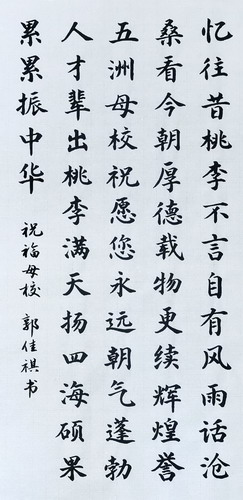 忆往昔桃李不言自有风雨话沧
桑看今朝厚德载物更续辉煌誉
五洲母校祝愿您永远朝气蓬勃
人才辈出桃李满天扬四海硕果
累累振中华
祝福母校 郭佳祺书